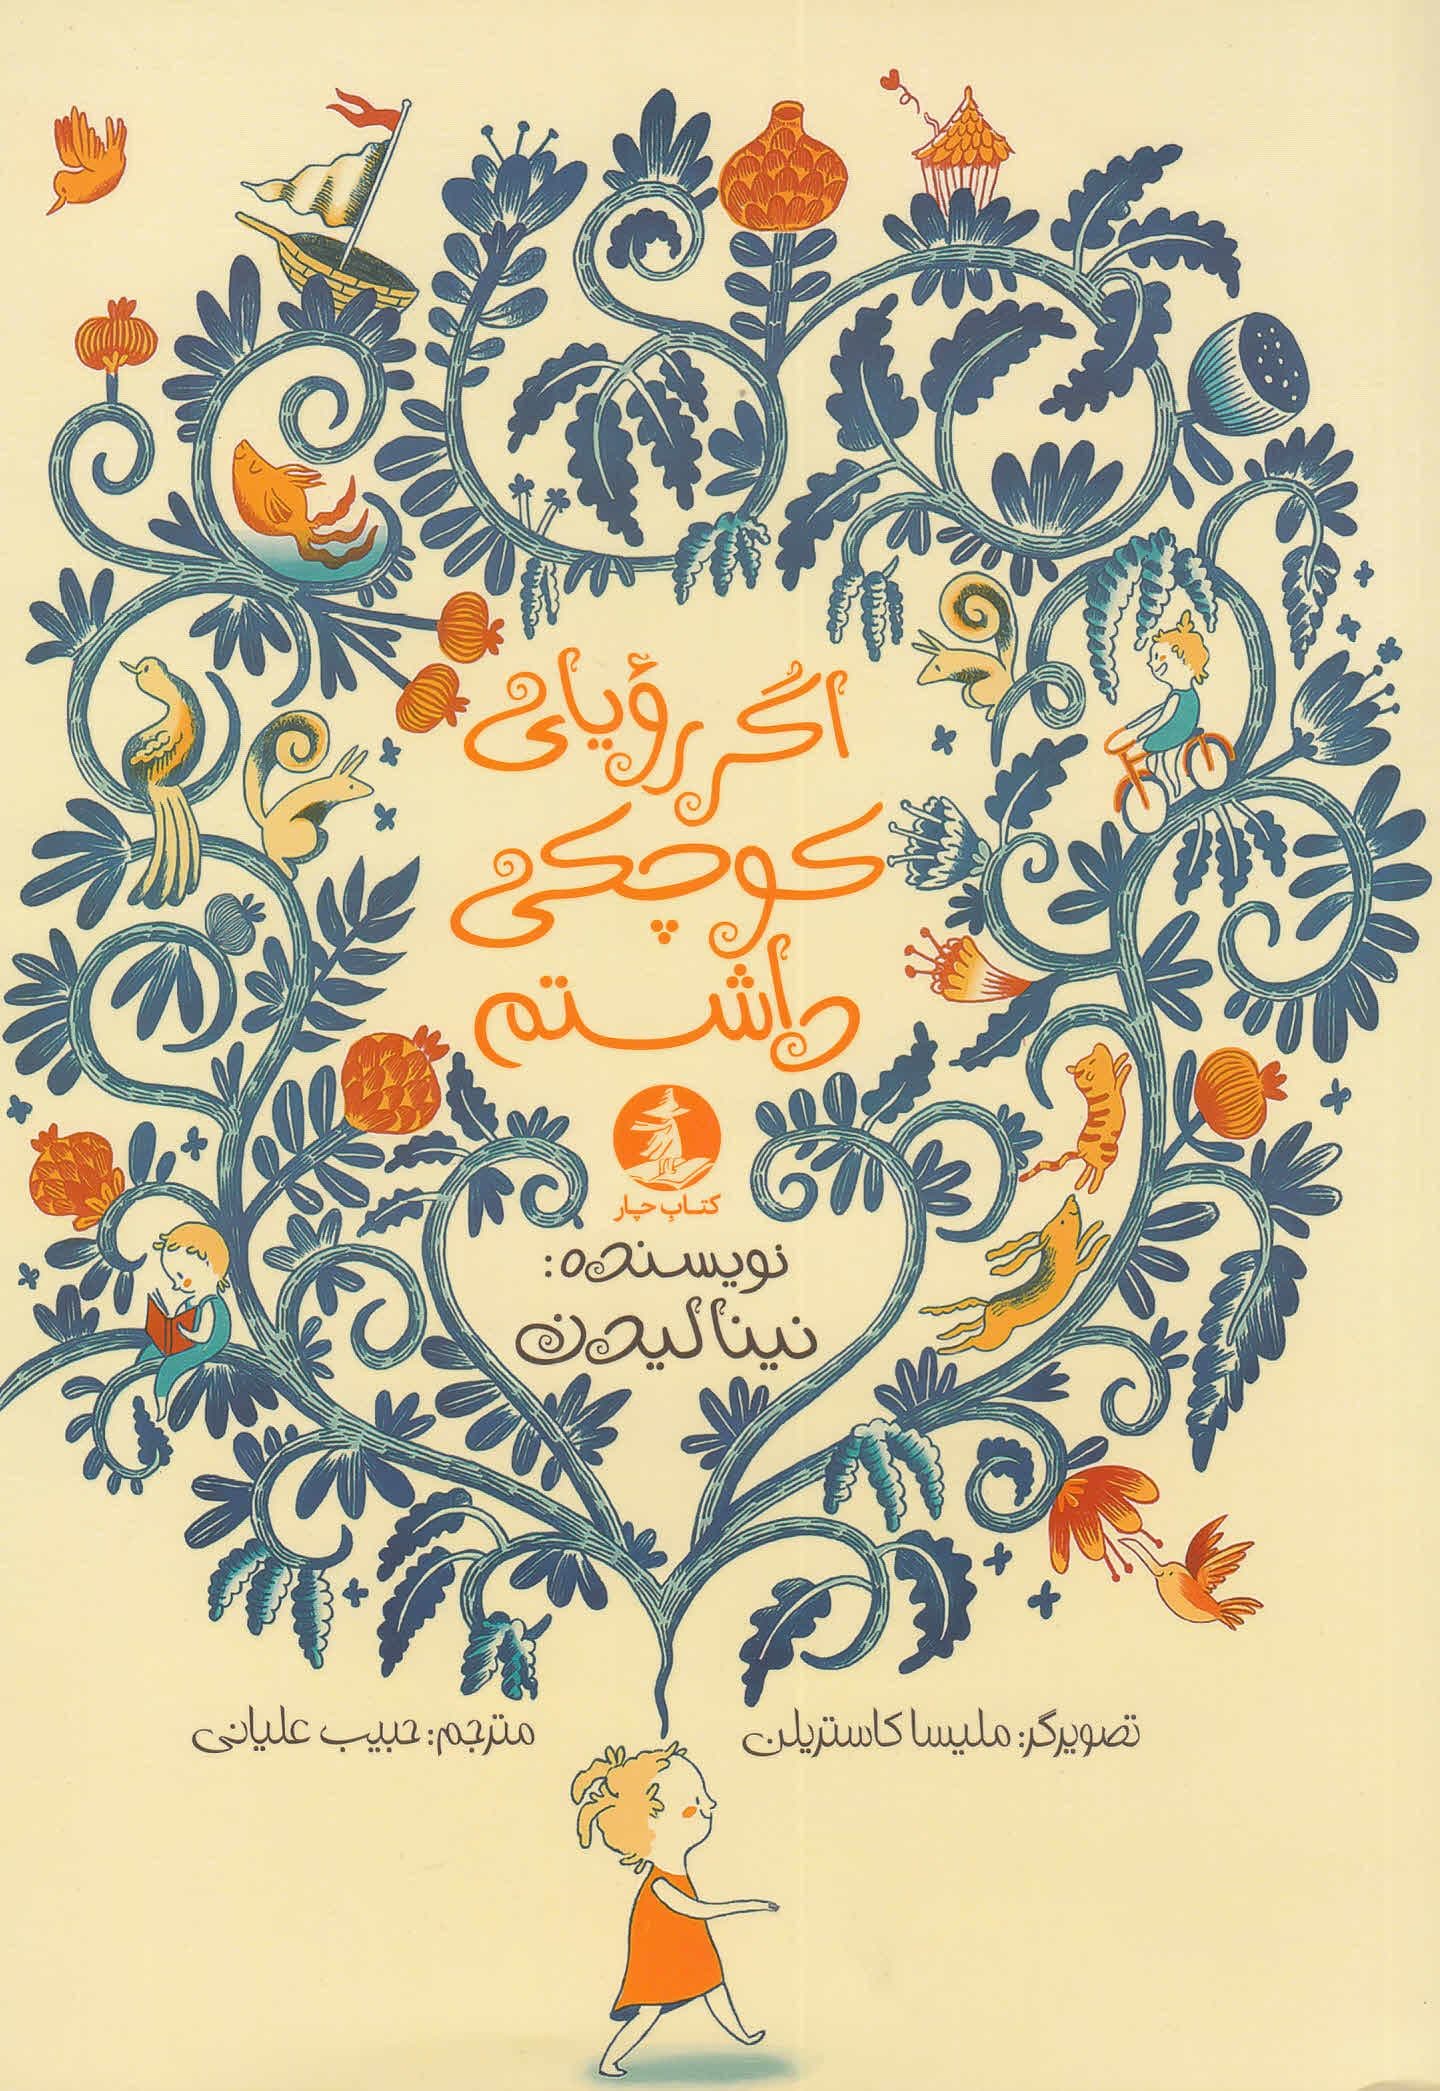 اگر رؤیای
کوچکی
داشتم
کتاب چار
نویسنده:
نینا لیدن
تصویرگر: ملیسا کاستریلن
مترجم: حبیب علیانی